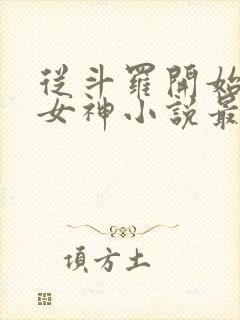 從斗羅開始
女神小説最
項方土